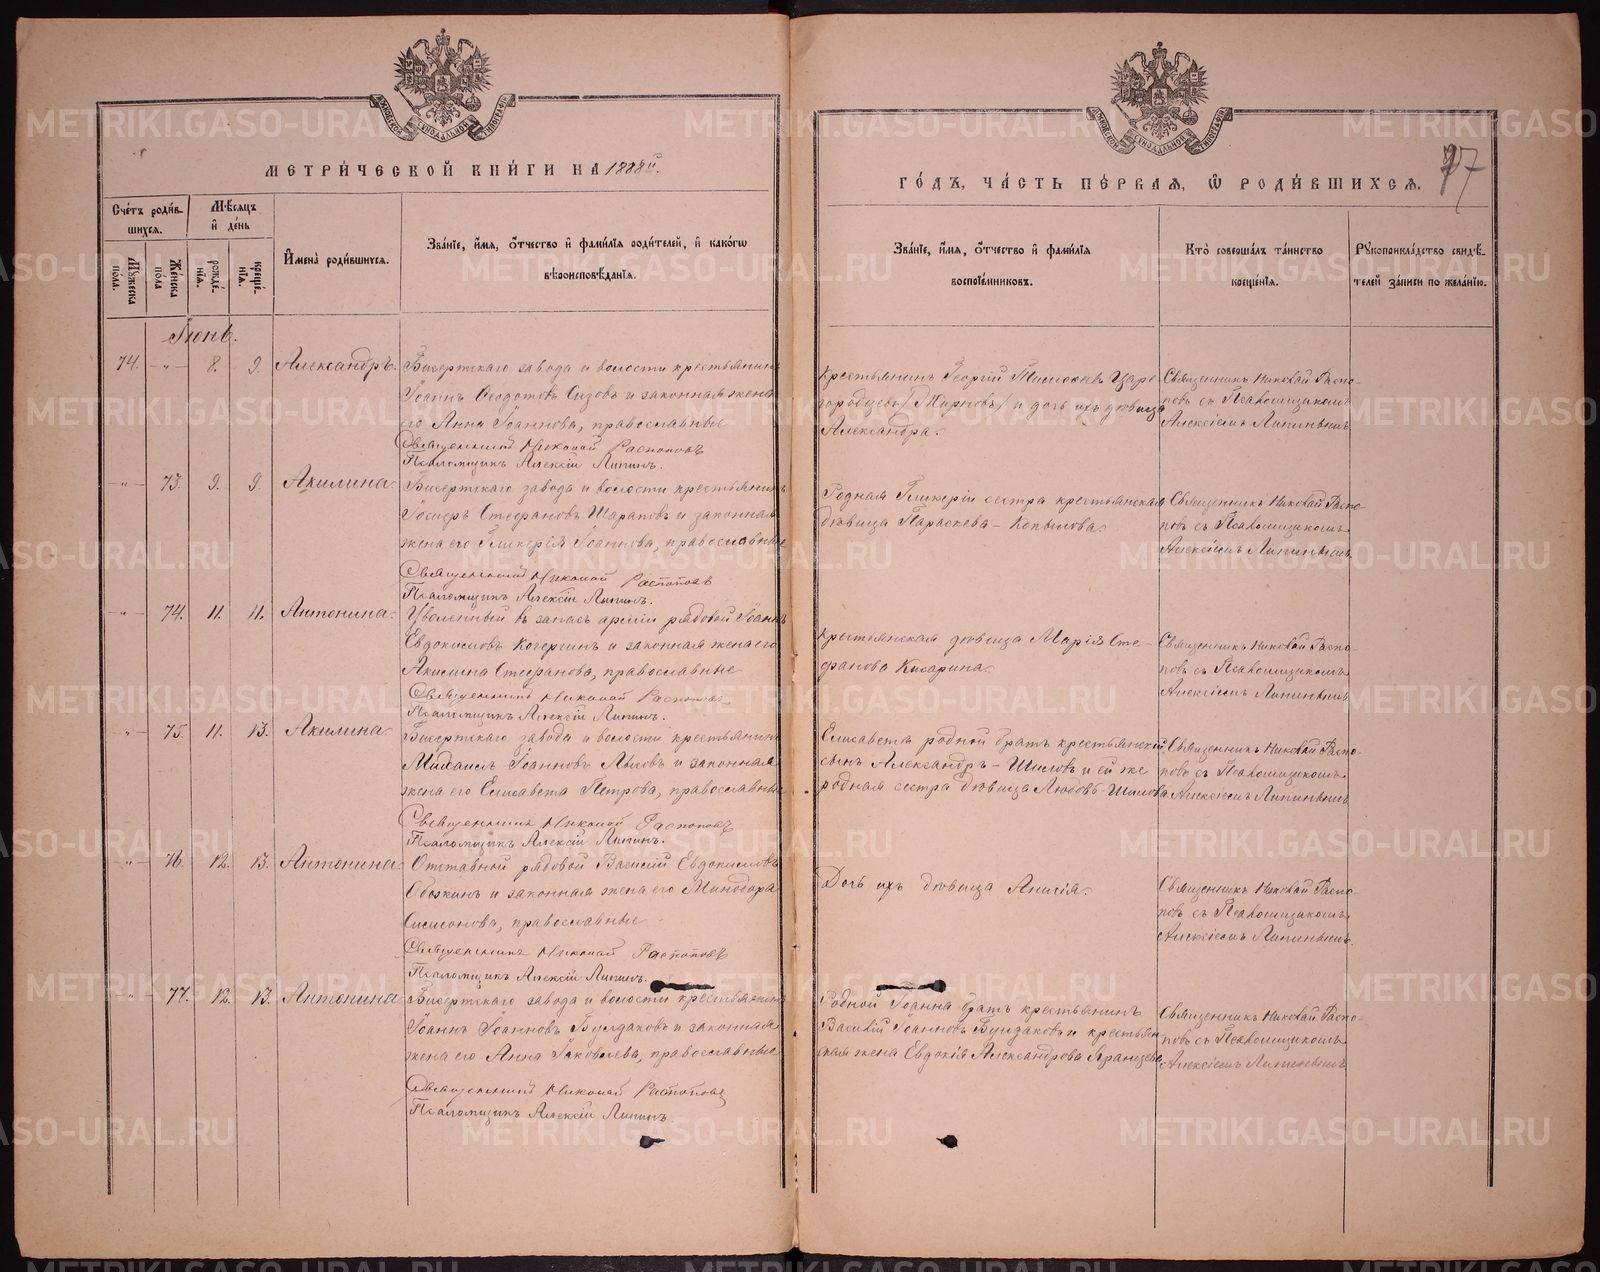 МЕТРИЧЕСКОЙ КНИГИ НА 1888й.
Счетъ родив-
шихся.
Мѣсяцъ
и день
Имена родившихся.
Званіе, имя, отчество и фамилія родителей, и какого
вѣроисповѣданія.
Мужеска
пола.
Женска
пола
рожде-
нія.
креще-
нія.
Іюнь.
74. -"- 8. 9. Александръ.
Бисертскаго завода и волости крестьянинъ
Іоаннъ Ѳеодотовъ Сизовъ и законная жена
его Анна Іоаннова, православные
Священникъ Николай Распоповъ
Псаломщикъ Алексій Липинъ.
-"- 73. 9. 9. Акилина
Бисертскаго завода и волости крестьянинъ
Іосифъ Стефановъ Шараповъ и законная
жена его Гликерія Іоаннова, православные
Священникъ Николай Распоповъ
Псаломщикъ Алексій Липинъ.
-"- 74. 11. 11. Антонина
Уволенный въ запасъ арміи рядовой Іоаннъ
Евдокимовъ Кочергинъ и законная жена его
Акилина Стефанова, православные
Священникъ Николай Распоповъ
Псаломщикъ Алексій Липинъ.
-"- 75. 11. 13. Акилина
Бисертскаго завода и волости крестьянинъ
Михаилъ Іоанновъ и законная
жена его Елисавета Петрова, православные
Священникъ Николай Распоповъ
Псаломщикъ Алексій Липинъ.
-"- 76. 12. 13. Антонина
Отставной рядовой Василій Евдокимовъ
Обоскинъ и законная жена его Минодора
Симонова, православные
Священникъ Николай Распоповъ
Псаломщикъ Алексій Липинъ.
-"- 77. 12. 13. Антонина
Бисертскаго завода и волости крестьянинъ
Іоаннъ Іоанновъ Булдаковъ и законная
жена его Анна Іаковлева, православные
Священникъ Николай Распоповъ
Псаломщикъ Алексій Липинъ.
77
ГОДЪ, ЧАСТЬ ПЕРВАЯ, Ѡ РОДИВШИХСЯ.
Званіе, имя, отчество и фамилія
воспріемниковъ.
Кто совершалъ таинство
крещенія.
Рукоприкладство свидѣ-
телей записи по желанію.
Крестьянинъ Георгій Царе-
городцевъ /Мирновъ/ и дочь ихъ дѣвица
Александра.
Священникъ Николай Распо-
повъ съ Псаломщикомъ
Алексіемъ Липинымъ
Родная Гликеріи сестра крестьянская
дѣвица Параскева Копылова
Священникъ Николай Распо-
повъ съ Псаломщикомъ
Алексіемъ Липинымъ
Крестьянская дѣвица Марія Сте-
фанова Кисарина
Священникъ Николай Распо-
повъ съ Псаломщикомъ
Алексіемъ Липинымъ
Елисавета родной братъ крестьянскій
сынъ Александръ Шиловъ и ей же
родная сестра дѣвица Любовь Шилова
Священникъ Николай Распо-
повъ съ Псаломщикомъ
Алексіемъ Липинымъ
Дочь ихъ дѣвица Анисія.
Священникъ Николай Распо-
повъ съ Псаломщикомъ
Алексіемъ Липинымъ.
Родной Іоанна братъ крестьянинъ
Василій Іоанновъ Булдаковъ и крестьян
ская жена Евдокія Александрова
Священникъ Николай Распо-
повъ съ Псаломщикомъ
Алексіемъ Липинымъ
METRIKI.GASO-URAL.RU